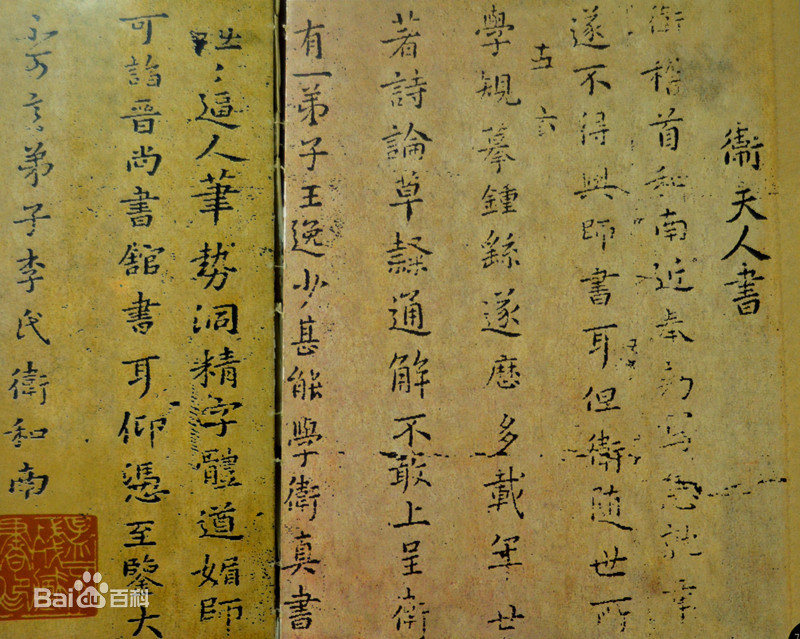 衛夫人書
衛稽首和南近奉勑寫急就章
遂不得與師書耳但衛隨世所
學規摹鍾繇遂歷多載年廿
著詩論草隸通解不敢上呈衛
有一弟子王逸少甚能學衛真書
咄〻逼人筆勢洞精字體遒媚師
可詣晉尚書館書耳仰憑至鑒大
不可言弟子李氏衛和南
Bai百科